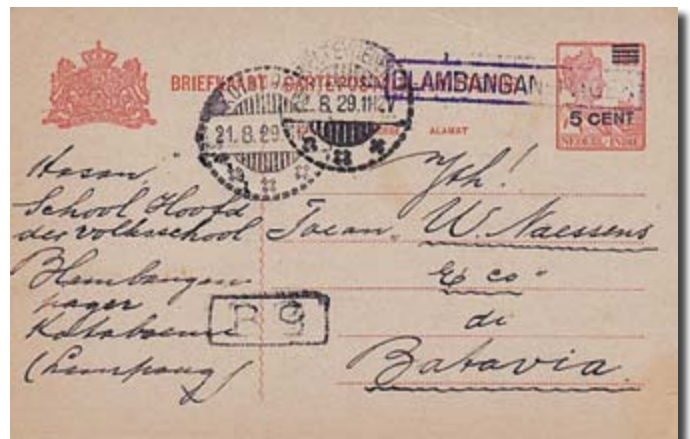 BRIEFKAART CARTE POSTALE
BLAMBANGAN
5 CENT
NEDERL-INDIE
ALAMAT
21.8.29
8.29.11
Hasan,
School Hoofd
der volksschool
Blambangan
pager
Kotaboemi
(Lampong)
R 9
Yth!
Toean W. Naessens
& Co
di
Batavia